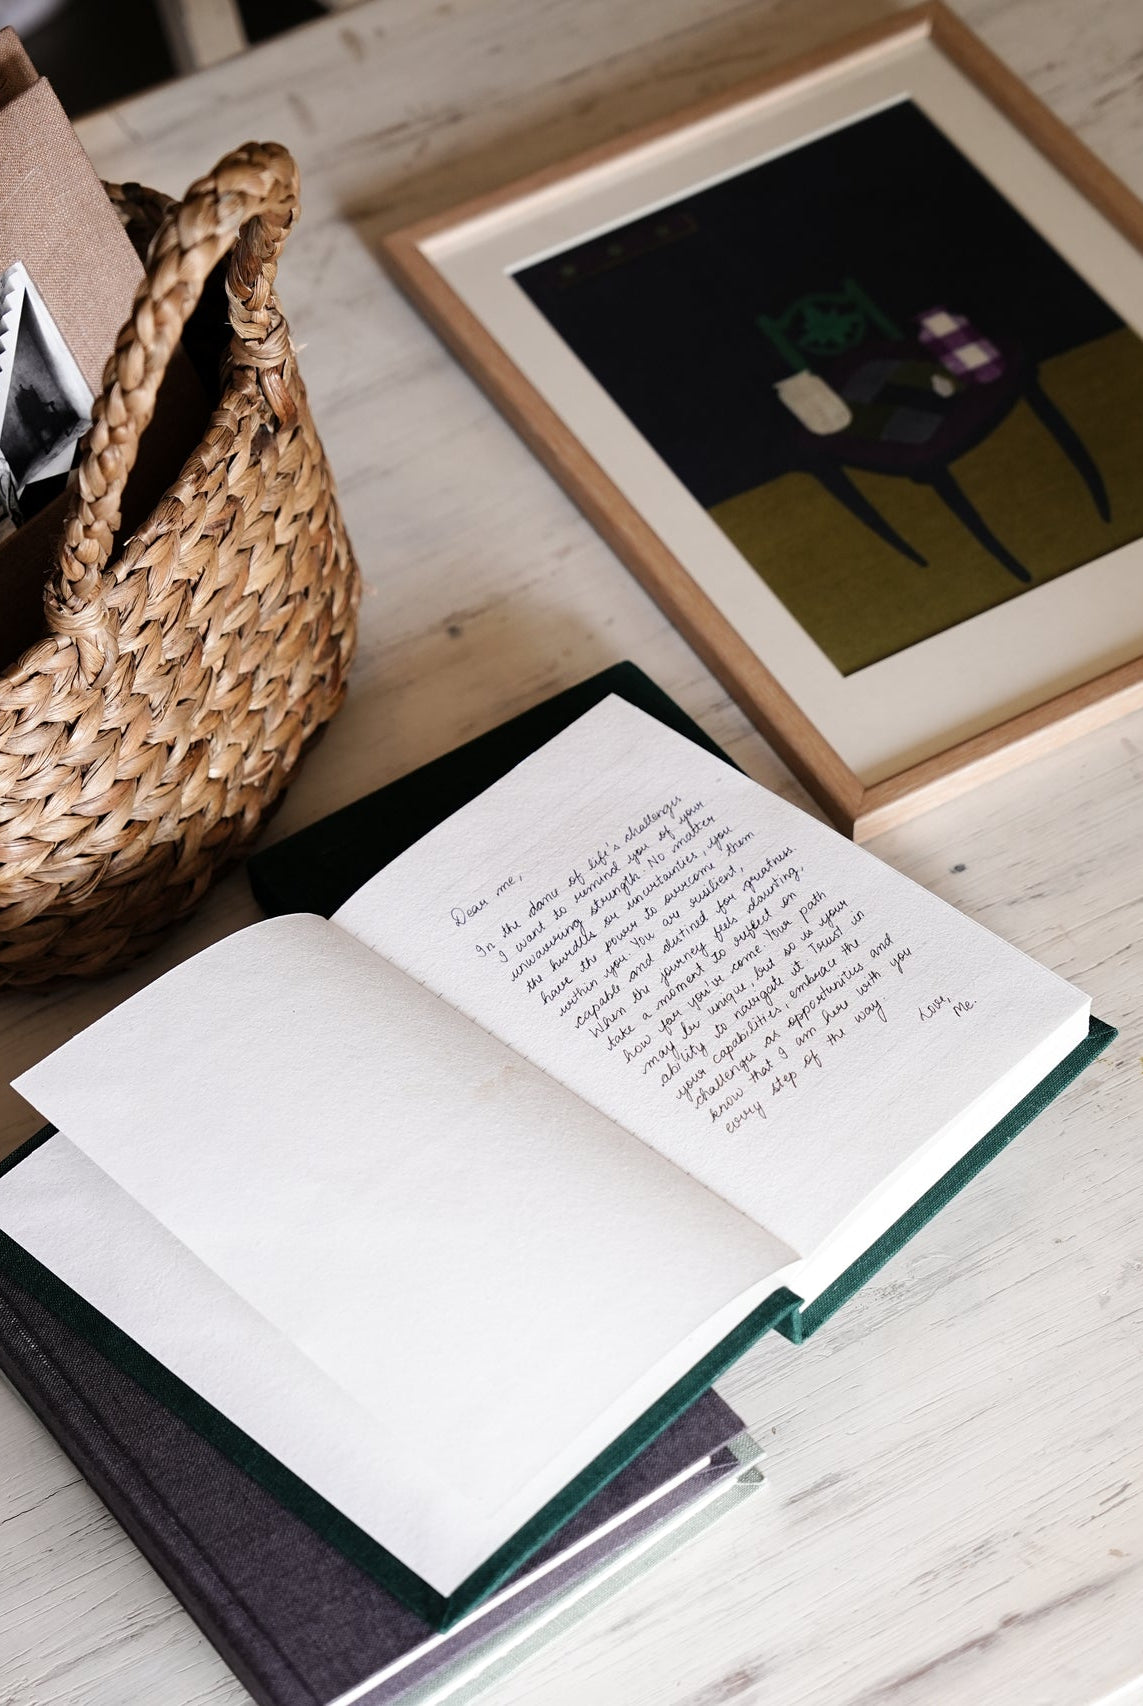 Dear me,
In the dance of life's challenges
I want to remind you of your
unwavering strength. No matter
the hurdles or uncertainties, you
have the power to overcome them
within you. You are resilient,
capable and destined for greatness.
When the journey feels daunting,
take a moment to reflect on
how far you've come. Your path
may be unique, but so is your
ability to navigate it. Trust in
your capabilities, embrace the
challenges as opportunities and
know that I am here with you
every step of the way.
Love,
Me.